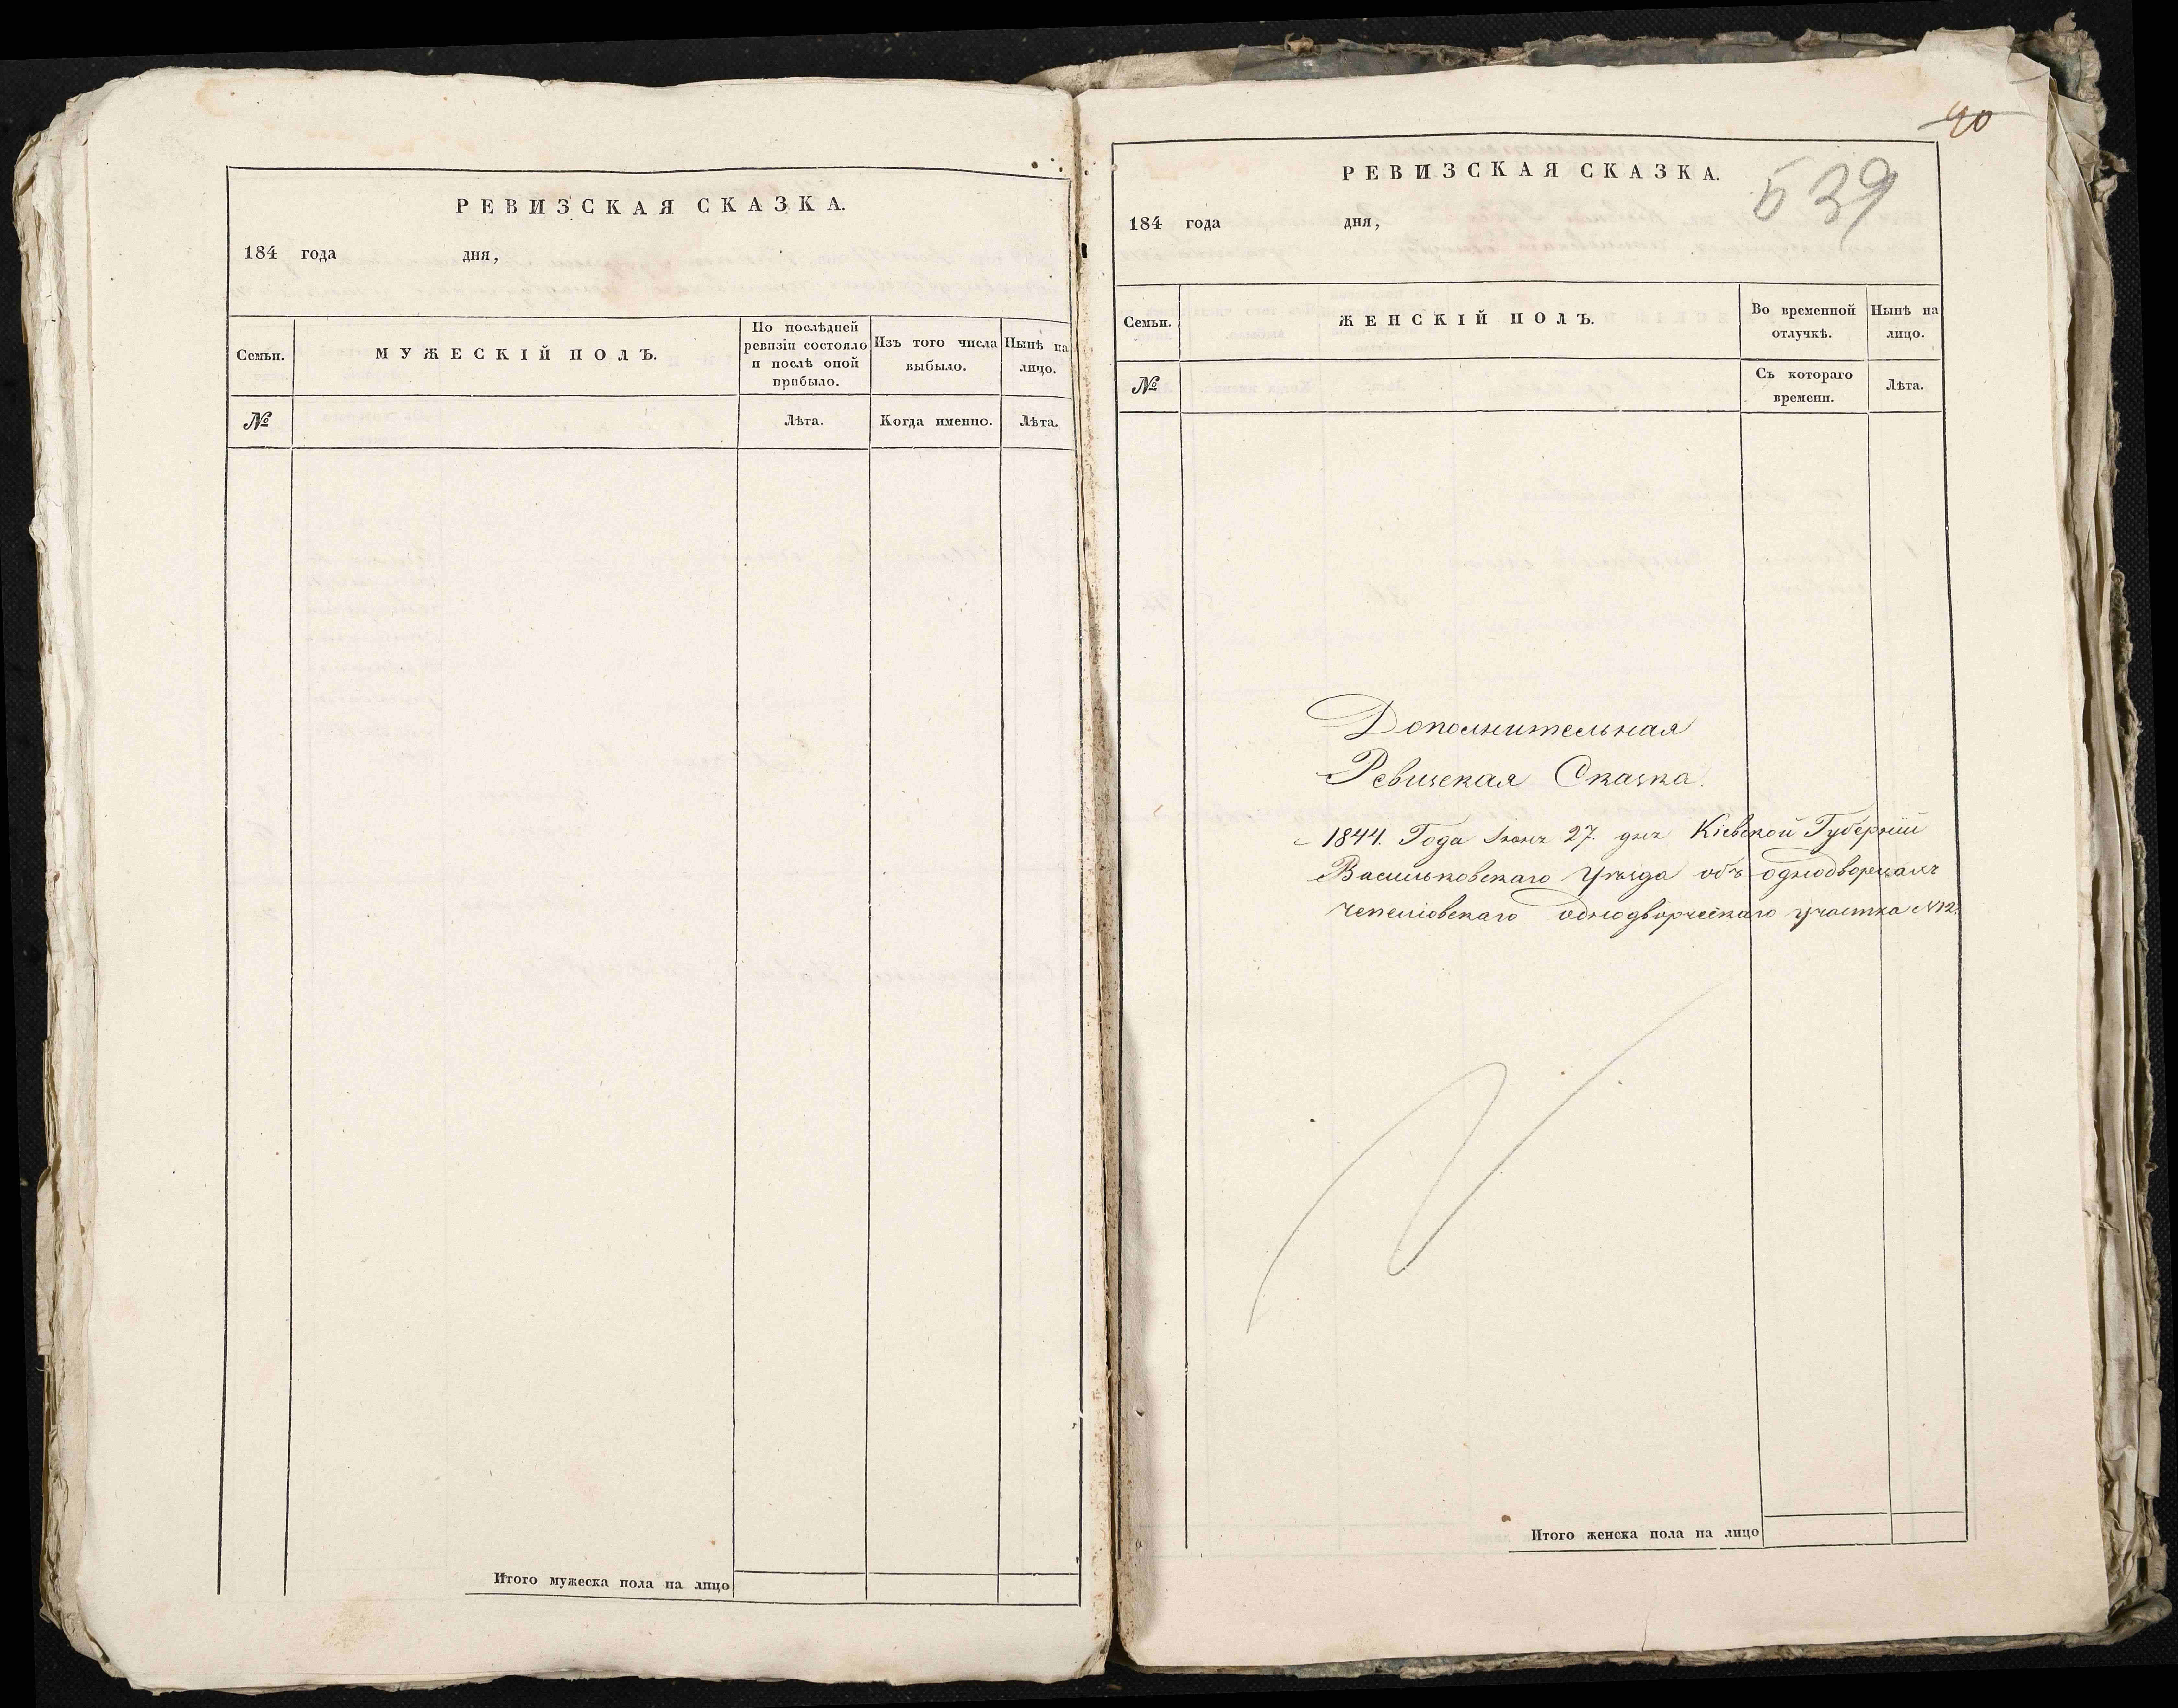 РЕВИЗСКАЯ СКАЗКА.
184 года дня,
Семьи.
МУЖЕСКІЙ ПОЛЪ.
По послѣдней
ревизіи состояло
и послѣ оной
прибыло.
Изъ того числа
выбыло.
Нынѣ на
лицо.
№
Лѣта.
Когда именно.
Лѣта.
Итого мужеска пола на лицо
90
539
РЕВИЗСКАЯ СКАЗКА.
184 года дня,
Семьи.
ЖЕНСКІЙ ПОЛЪ.
Во временной
отлучкѣ.
Нынѣ на
лицо.
№
Съ котораго
времени.
Лѣта.
Дополнительная
Ревизская Сказка.
1844. Года 27. дня Кіевской Губерніи
Васильковскаго уѣзда объ однодворцахъ
однодворческаго участка №12.
Итого женска пола на лицо